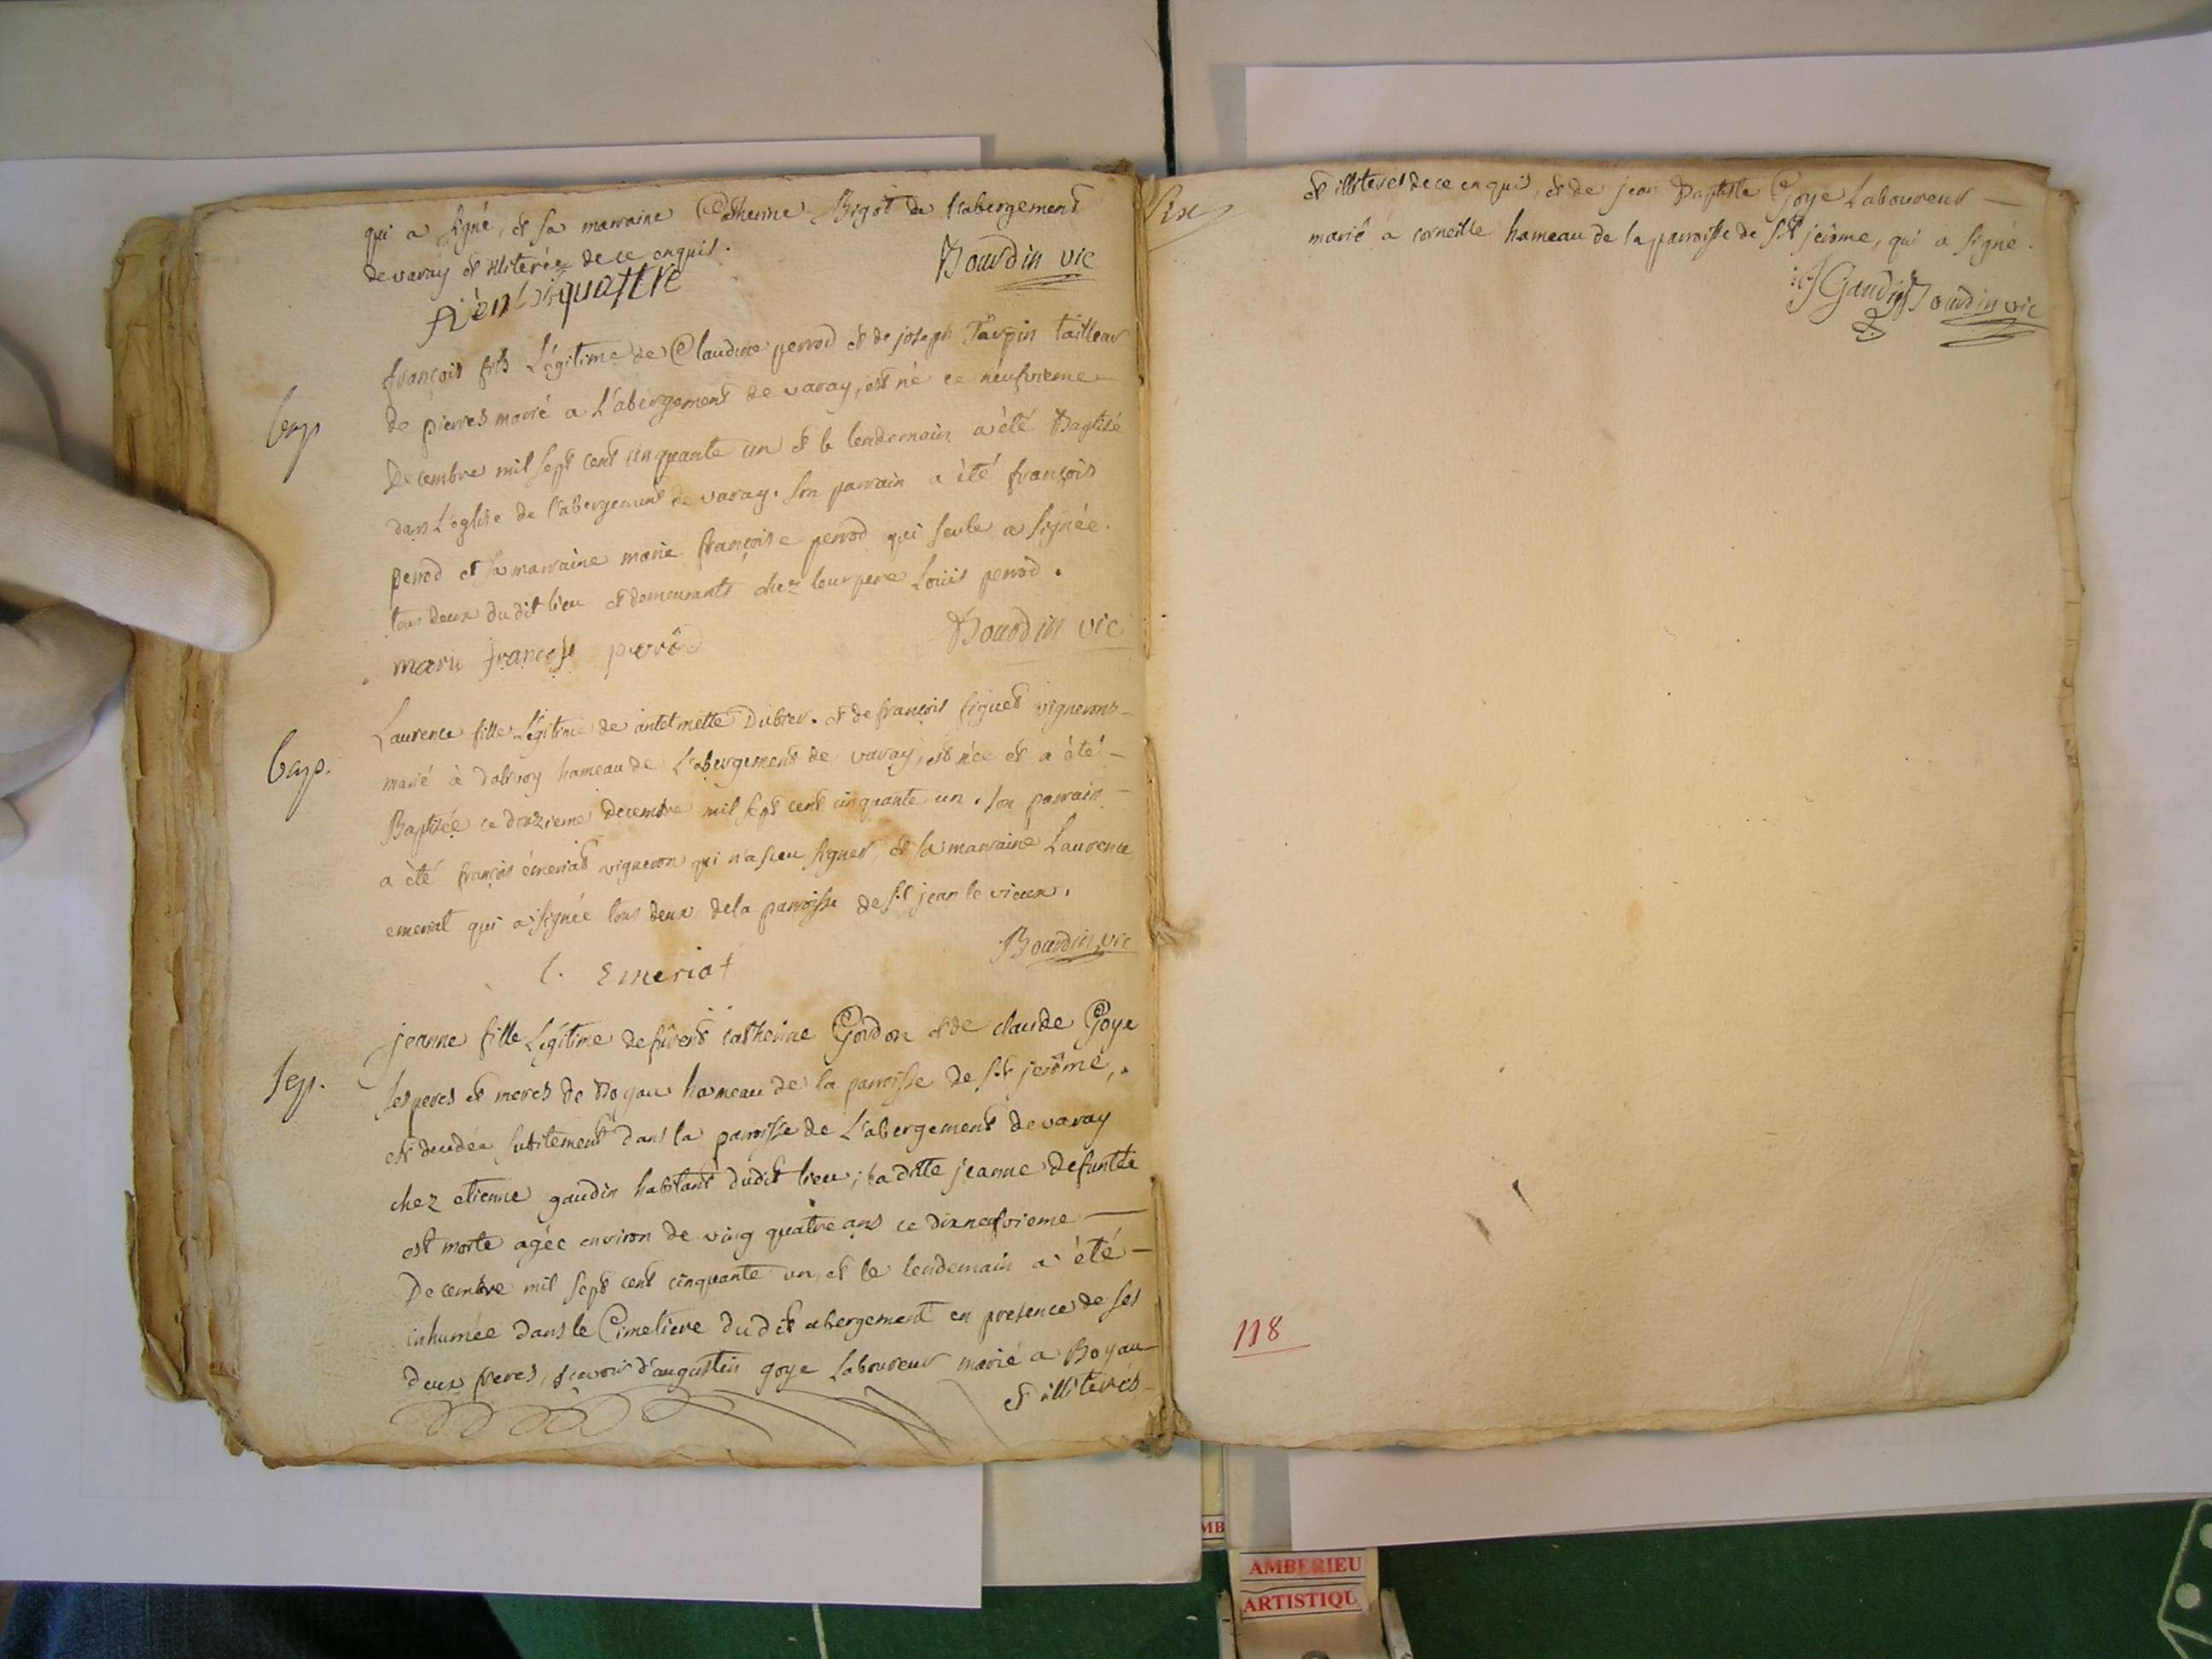 qui a signé, et sa marraine Catherine Bigot de l'abergement
de varay et illiterée de ce enquis.
Bourdin vic
bap
françois fils Légitime de Claudine perrod et de joseph Taupin tailleur
de pierres marié a L'abergement de varay, est né ce neufvieme
Decembre mil sept cent cinquante un et le lendemain a èté Baptisé
dans L'eglise de l'abergement de varay. son parrain a èté françois
perrod et sa marraine marie françoise perrod qui seule a signée.
tous deux du dit lieu et demeurants chez leur pere Loüis perrod.
marie francose perrod
Bourdin vic
bap.
Laurence fille Légitime de antelmette Dubier. et de françois figuet vignerons
marié à dalivoy hameau de L'abergement de varay, est née et a èté
Baptisée ce douzieme decembre mil sept cent cinquante un. son parrain
a èté françois émeriat vigneron qui n'a sceu signer, et sa marraine Laurence
emeriat qui a signée tous deux de la parroisse de st jean le vieux.
l. Emeriat
Bourdin vic
sep.
jeanne fille Légitime de fûrent catherine Goidon et de claude Goye
ses peres et meres de Boyau hameau de la parroisse de st jerôme,
est decedée subitement dans la parroisse de L'abergement de varay
chez etienne gaudin habitant dudit lieu; la ditte jeanne defuntée
est morte agée environ de ving quatre ans ce dixneufvieme
Decembre mil sept cent cinquante un, et le lendemain a èté
inhumée dans le Cimetiere dudit abergement en presence de ses
deux freres, sçavoir d'augustin goye Laboureur marié a Boyau
et illiterés
Six
et illiterés de ce enquis, et de jean Baptiste Goye Laboureur
marié à corneille hameau de la parroisse de st jerôme, qui a signé.
Gaudin Bourdin vic
118
AMBERIEU
ARTISTIQU